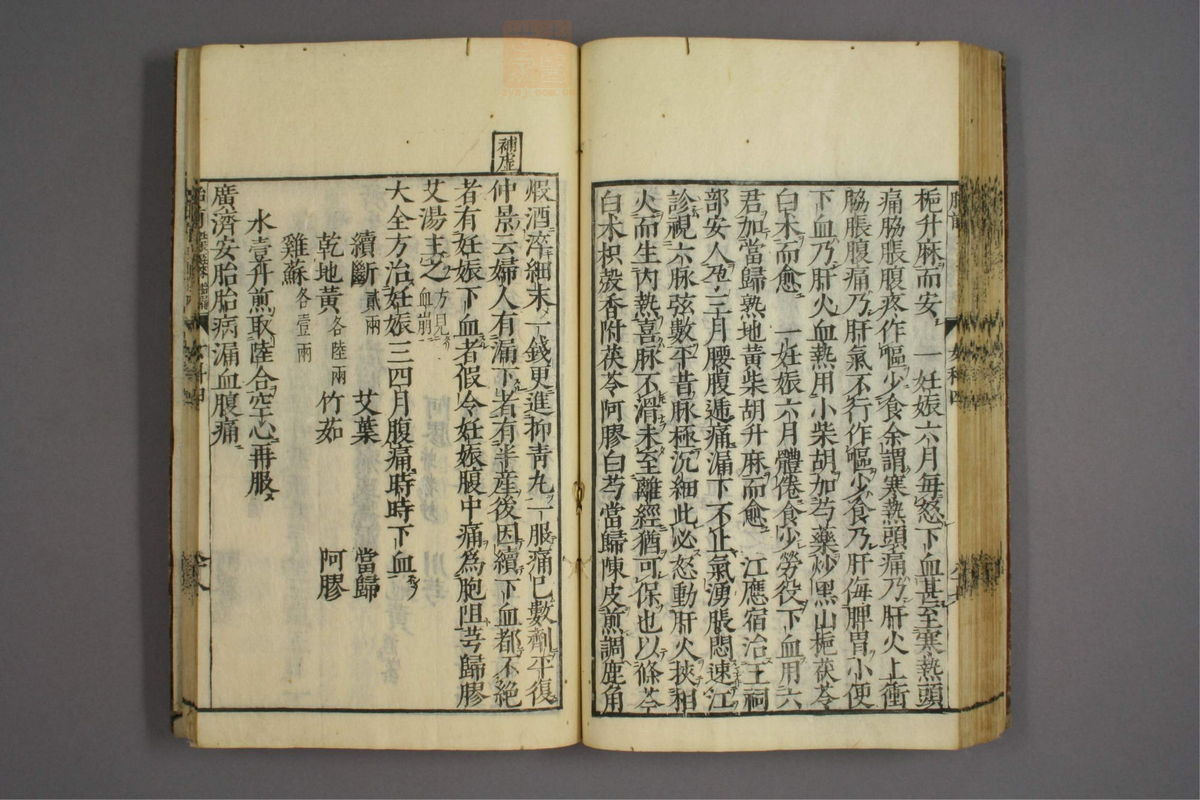 梔升麻而安 一妊娠六月每怒下血甚至寒熱頭
痛脇脹腹疼作嘔少食余謂寒熱頭痛乃肝火上衝
脇脹腹痛乃肝氣不行作嘔少食乃肝侮脾胃小便
下血乃肝火血熱用小柴胡加芍藥炒黑山梔茯苓
白术而愈 一妊娠六月體倦食少勞役下血用六
君加當歸熟地黃柴胡升麻而愈 江應宿治王祠
部安人孕三月腰腹遞痛漏下不止氣湧脹悶速江
診視六脉弦數平昔脉極沉細此必怒動肝火挾相
火而生內熱喜脉不滑未至離經猶可保也以條芩
白术枳殼香附茯苓阿膠白芍當歸陳皮煎調鹿角
補虛
煆酒淬細末一錢更進抑青丸一服痛已數劑平復
仲景云婦人有漏下者有半產後因續下血都不絕
者有妊娠下血者假令妊娠腹中痛為胞阻芎歸膠
艾湯主之 方見血崩
大全方治妊娠三四月腹痛時時下血
續斷 貳兩 艾葉 當歸
乾地黃 各陸兩 竹茹 阿膠
雞蘇 各壹兩
水壹升煎取陸合空心再服
廣濟安胎胎病漏血腹痛